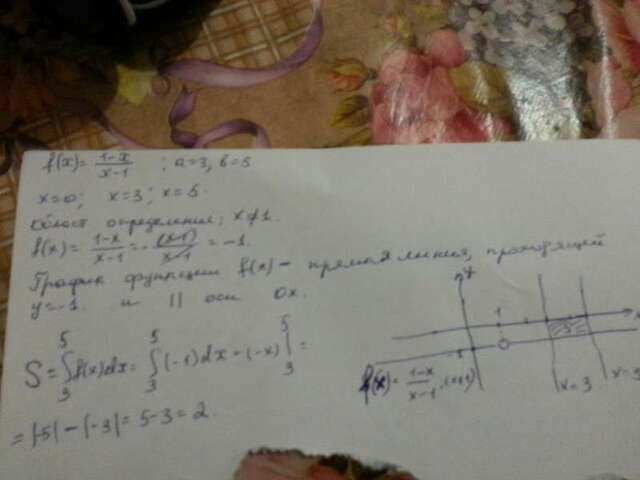 f(x)= 1-x / x-1 ; a=3, b=5
x=0; x=3; x=5.
Област определения: x≠1.
f(x) = 1-x / x-1 = -(x-1) / x-1 = -1.
График функции f(x) - прямая линия, проходящей
y=-1. и || оси Ox.
S = ∫₃⁵ f(x)dx = ∫₃⁵ (-1)dx = (-x) |₃⁵ =
= |-5| - |-3| = 5-3 = 2.
y
1
x
f(x) = 1-x / x-1, (x≠1)
x=3